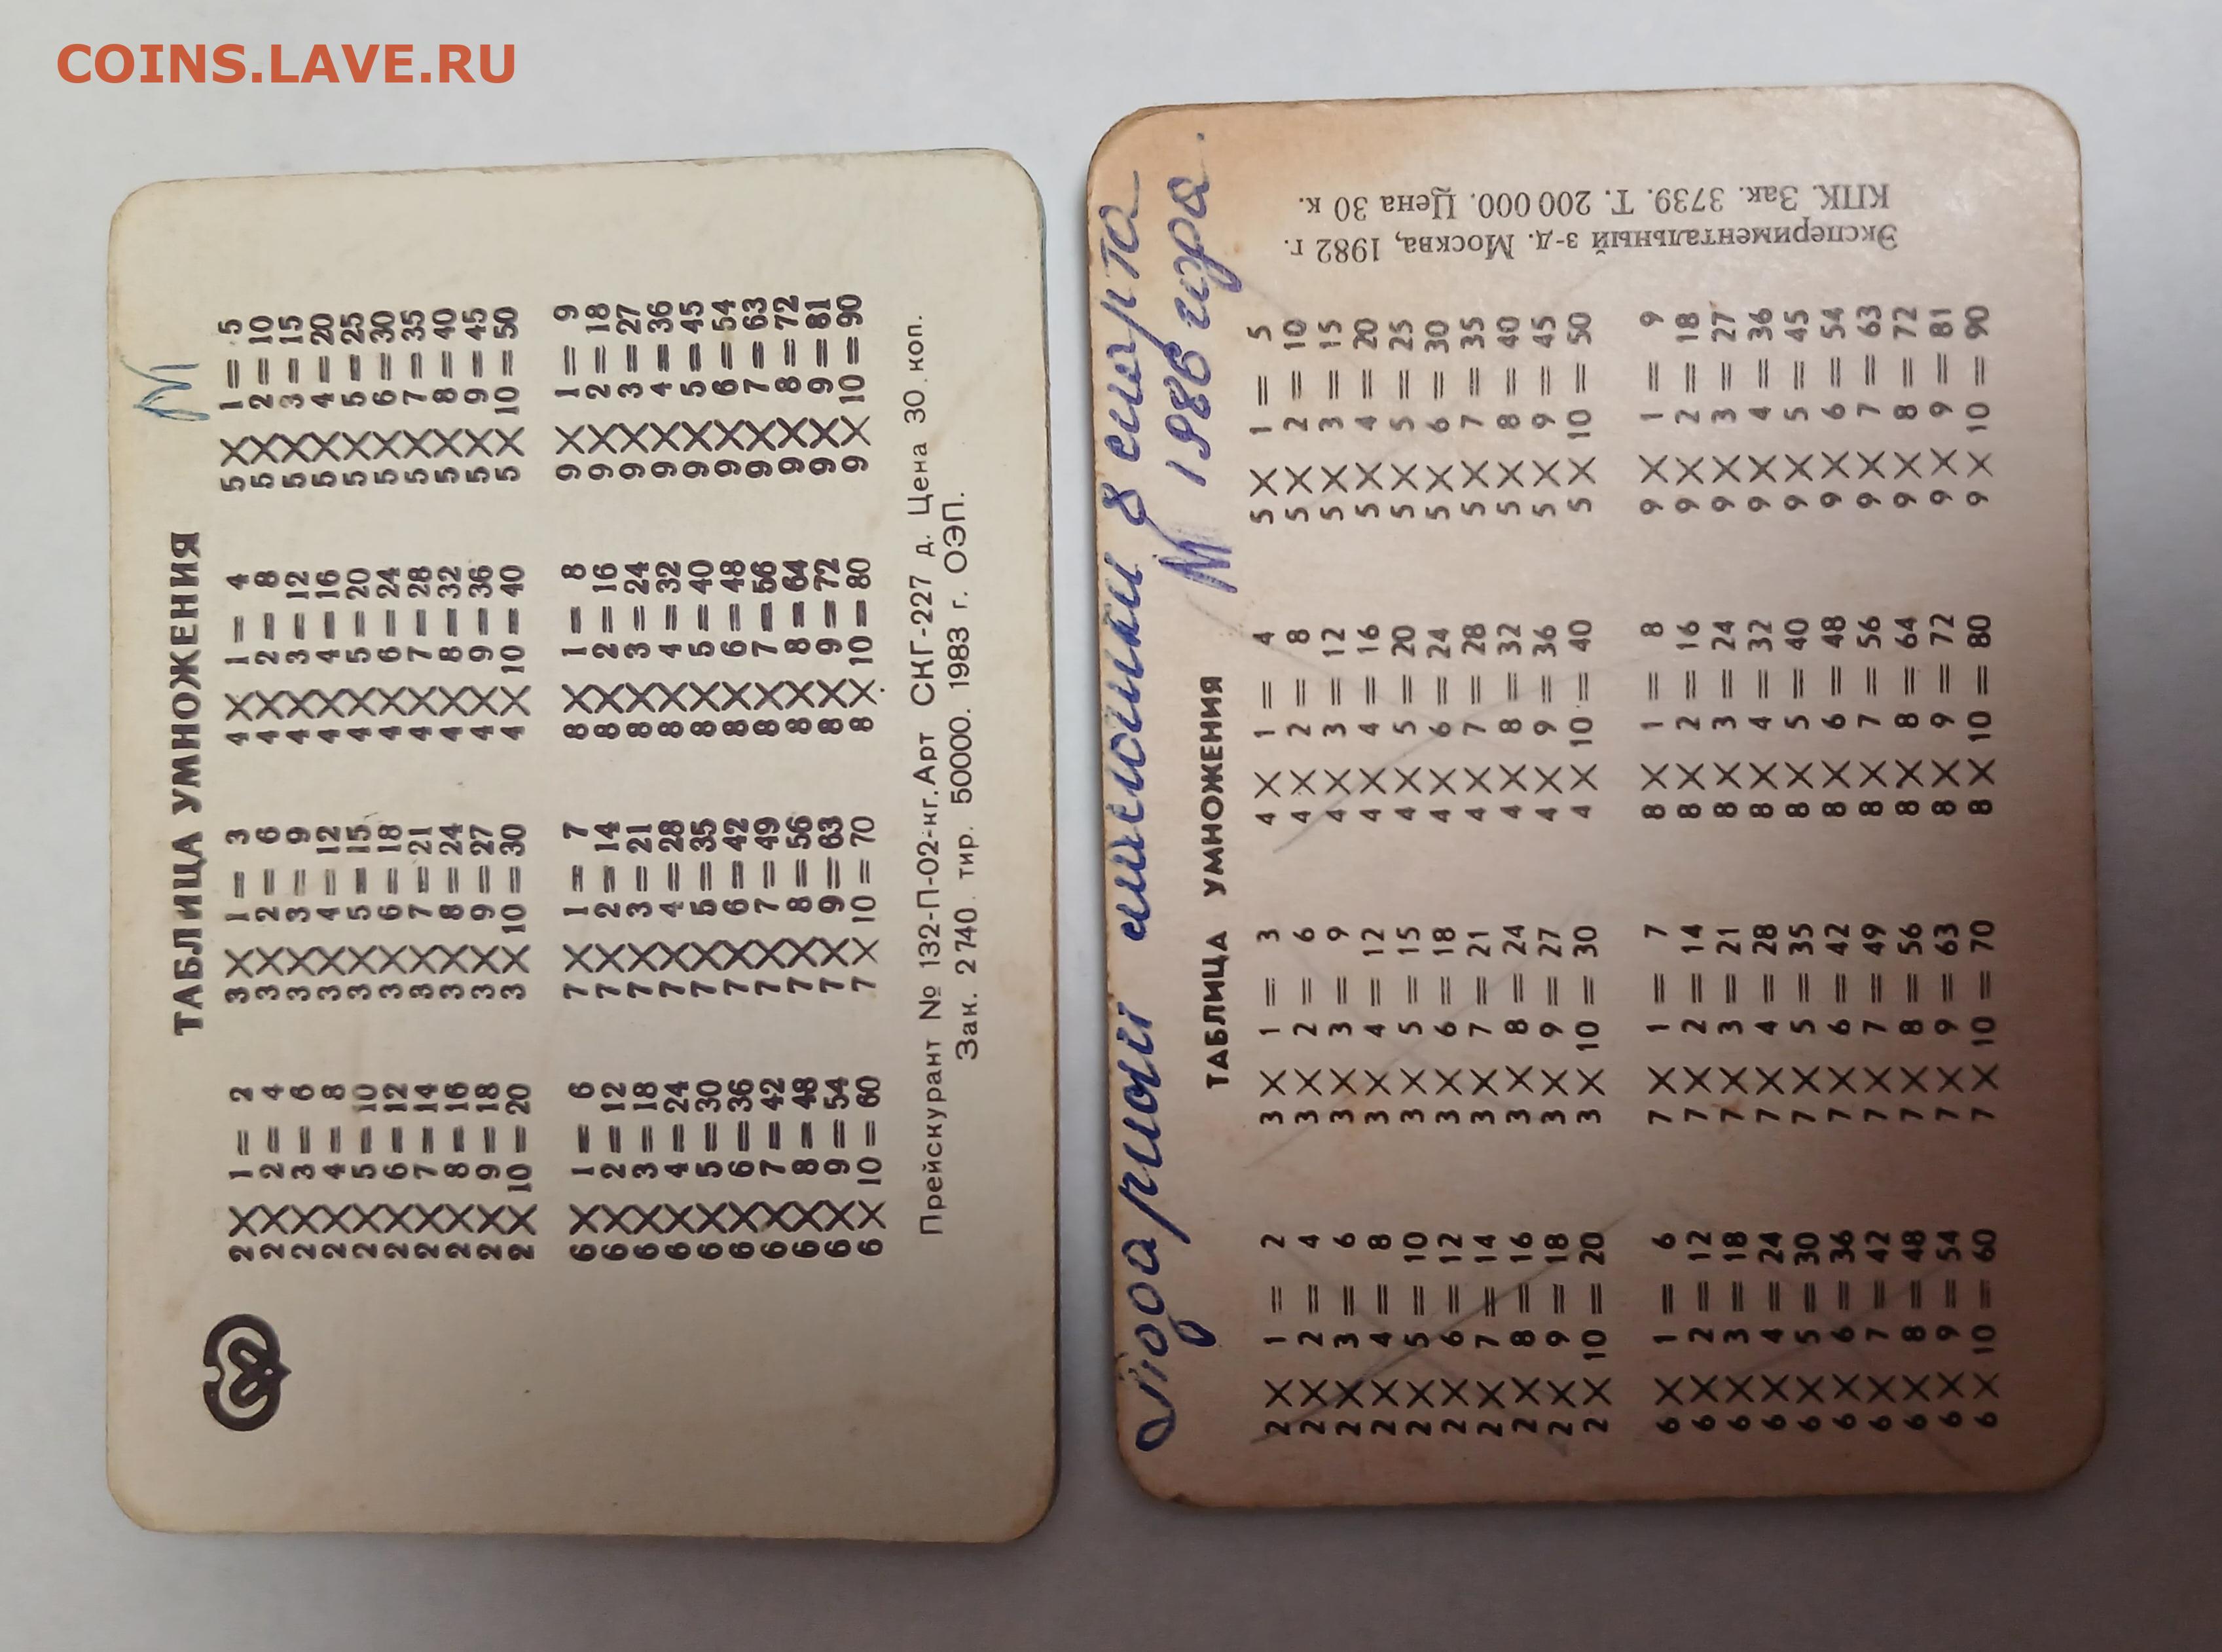 COINS.LAVE.RU
ТАБЛИЦА УМНОЖЕНИЯ
2 X 1 = 2 3 X 1 = 3 4 X 1 = 4 5 X 1 = 5
2 X 2 = 4 3 X 2 = 6 4 X 2 = 8 5 X 2 = 10
2 X 3 = 6 3 X 3 = 9 4 X 3 = 12 5 X 3 = 15
2 X 4 = 8 3 X 4 = 12 4 X 4 = 16 5 X 4 = 20
2 X 5 = 10 3 X 5 = 15 4 X 5 = 20 5 X 5 = 25
2 X 6 = 12 3 X 6 = 18 4 X 6 = 24 5 X 6 = 30
2 X 7 = 14 3 X 7 = 21 4 X 7 = 28 5 X 7 = 35
2 X 8 = 16 3 X 8 = 24 4 X 8 = 32 5 X 8 = 40
2 X 9 = 18 3 X 9 = 27 4 X 9 = 36 5 X 9 = 45
2 X 10 = 20 3 X 10 = 30 4 X 10 = 40 5 X 10 = 50
6 X 1 = 6 7 X 1 = 7 8 X 1 = 8 9 X 1 = 9
6 X 2 = 12 7 X 2 = 14 8 X 2 = 16 9 X 2 = 18
6 X 3 = 18 7 X 3 = 21 8 X 3 = 24 9 X 3 = 27
6 X 4 = 24 7 X 4 = 28 8 X 4 = 32 9 X 4 = 36
6 X 5 = 30 7 X 5 = 35 8 X 5 = 40 9 X 5 = 45
6 X 6 = 36 7 X 6 = 42 8 X 6 = 48 9 X 6 = 54
6 X 7 = 42 7 X 7 = 49 8 X 7 = 56 9 X 7 = 63
6 X 8 = 48 7 X 8 = 56 8 X 8 = 64 9 X 8 = 72
6 X 9 = 54 7 X 9 = 63 8 X 9 = 72 9 X 9 = 81
6 X 10 = 60 7 X 10 = 70 8 X 10 = 80 9 X 10 = 90
Прейскурант № 132-П-02-кг. Арт СКГ-227 д. Цена 30 коп.
Зак. 2740. тир. 50000. 1983 г. ОЭП.
Подарили мальчики 8 марта
1986 года.
ТАБЛИЦА УМНОЖЕНИЯ
2 X 1 = 2 3 X 1 = 3 4 X 1 = 4 5 X 1 = 5
2 X 2 = 4 3 X 2 = 6 4 X 2 = 8 5 X 2 = 10
2 X 3 = 6 3 X 3 = 9 4 X 3 = 12 5 X 3 = 15
2 X 4 = 8 3 X 4 = 12 4 X 4 = 16 5 X 4 = 20
2 X 5 = 10 3 X 5 = 15 4 X 5 = 20 5 X 5 = 25
2 X 6 = 12 3 X 6 = 18 4 X 6 = 24 5 X 6 = 30
2 X 7 = 14 3 X 7 = 21 4 X 7 = 28 5 X 7 = 35
2 X 8 = 16 3 X 8 = 24 4 X 8 = 32 5 X 8 = 40
2 X 9 = 18 3 X 9 = 27 4 X 9 = 36 5 X 9 = 45
2 X 10 = 20 3 X 10 = 30 4 X 10 = 40 5 X 10 = 50
6 X 1 = 6 7 X 1 = 7 8 X 1 = 8 9 X 1 = 9
6 X 2 = 12 7 X 2 = 14 8 X 2 = 16 9 X 2 = 18
6 X 3 = 18 7 X 3 = 21 8 X 3 = 24 9 X 3 = 27
6 X 4 = 24 7 X 4 = 28 8 X 4 = 32 9 X 4 = 36
6 X 5 = 30 7 X 5 = 35 8 X 5 = 40 9 X 5 = 45
6 X 6 = 36 7 X 6 = 42 8 X 6 = 48 9 X 6 = 54
6 X 7 = 42 7 X 7 = 49 8 X 7 = 56 9 X 7 = 63
6 X 8 = 48 7 X 8 = 56 8 X 8 = 64 9 X 8 = 72
6 X 9 = 54 7 X 9 = 63 8 X 9 = 72 9 X 9 = 81
6 X 10 = 60 7 X 10 = 70 8 X 10 = 80 9 X 10 = 90
Экспериментальный з-д. Москва, 1982 г.
КПК. Зак. 3739. Т. 200 000. Цена 30 к.